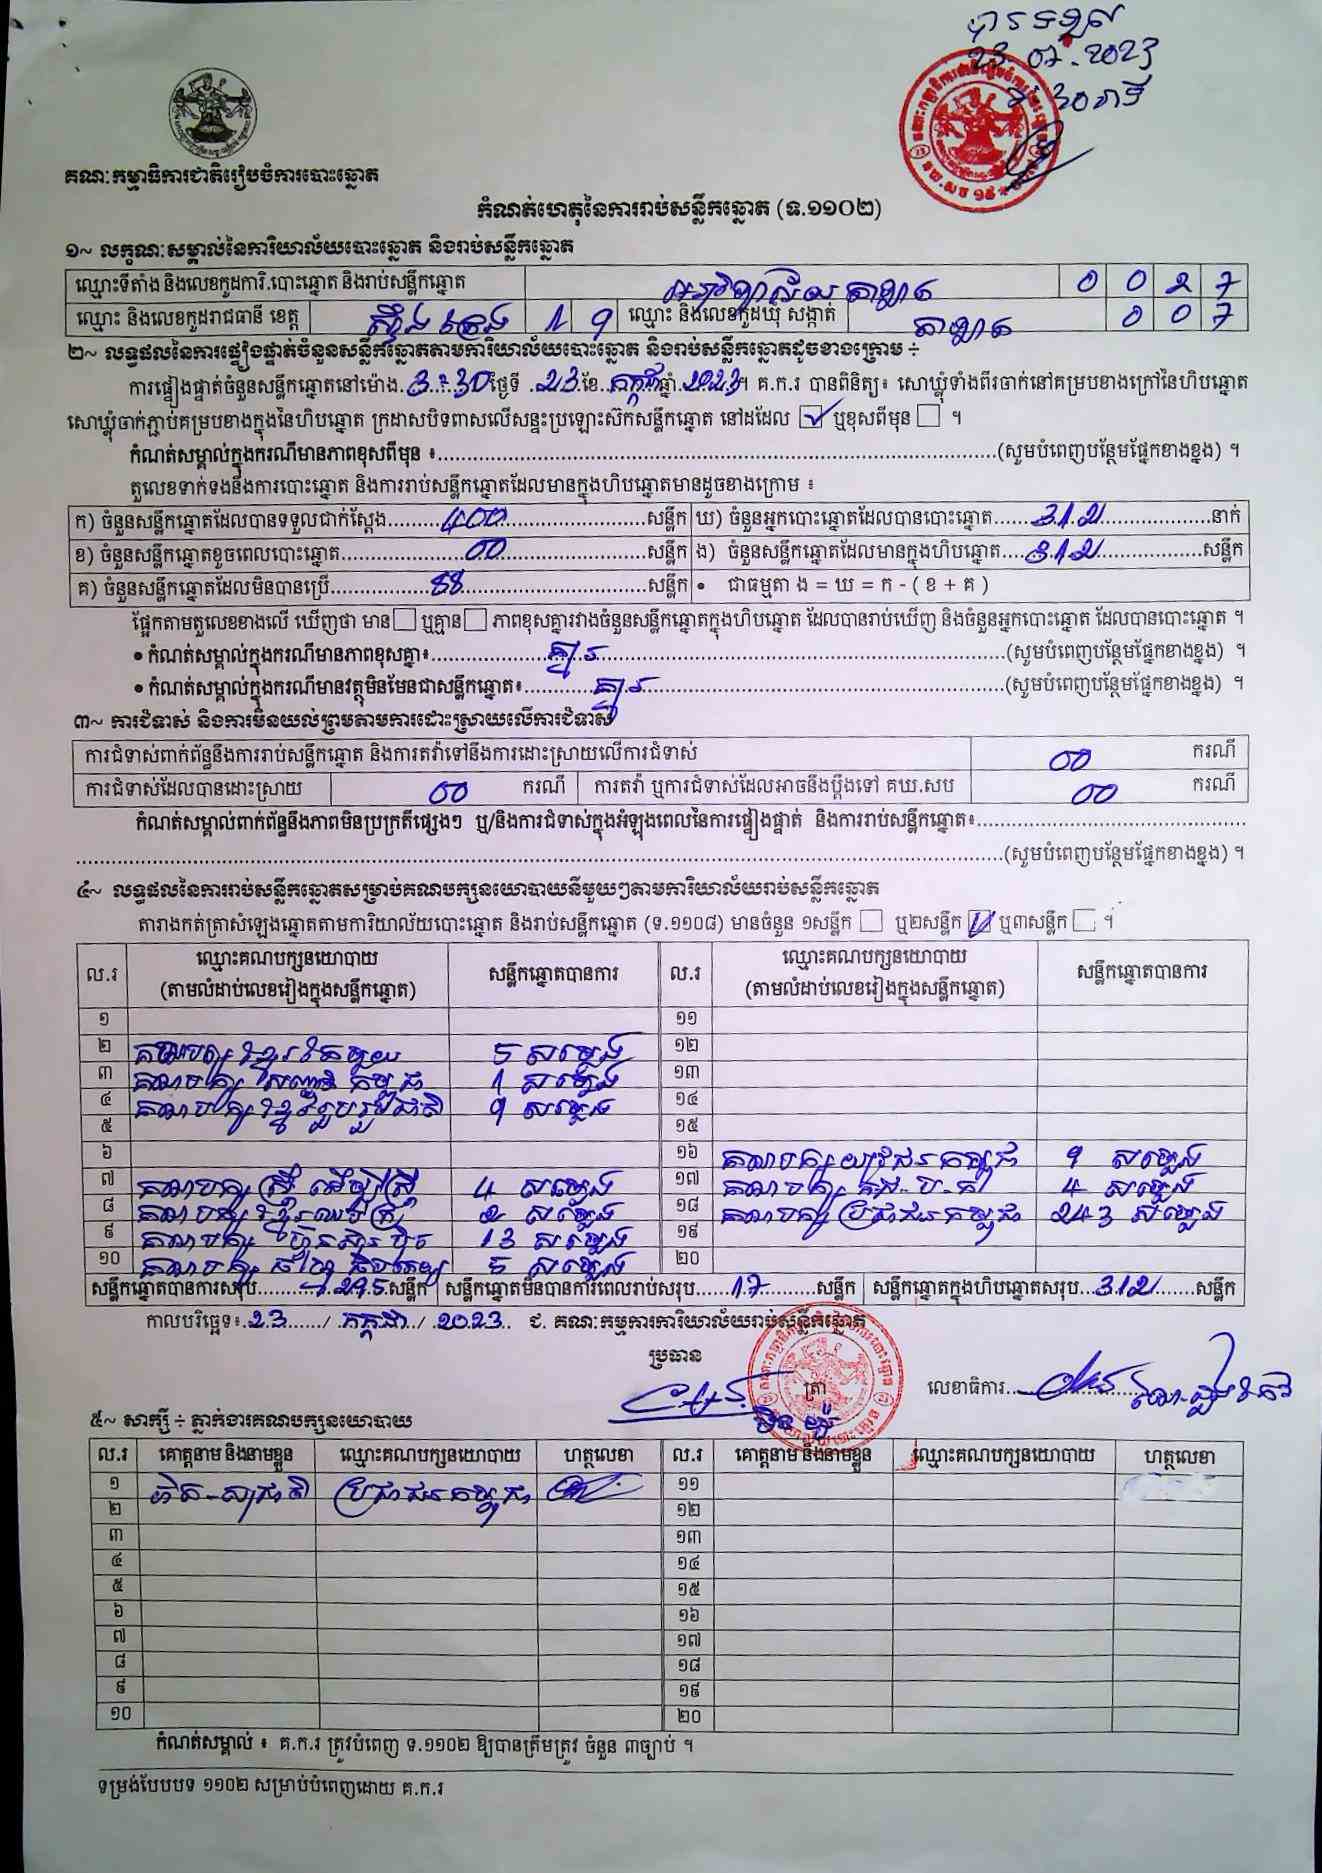 បានទទួល
23.07.2023
គណៈកម្មាធិការជាតិរៀបចំការបោះឆ្នោត
កំណត់ហេតុនៃការរាប់សន្លឹកឆ្នោត (ទ.១១០២)
១~ លក្ខណៈសម្គាល់នៃការិយាល័យបោះឆ្នោត និងរាប់សន្លឹកឆ្នោត
ឈ្មោះទីតាំង និងលេខកូដការិ.បោះឆ្នោត និងរាប់សន្លឹកឆ្នោត 0 0 2 7
ឈ្មោះ និងលេខកូដរាជធានី ខេត្ត ស្ទឹងត្រែង 1 9 ឈ្មោះ និងលេខកូដឃុំ សង្កាត់ 0 0 7
២~ លទ្ធផលនៃការផ្ទៀងផ្ទាត់ចំនួនសន្លឹកឆ្នោតតាមការិយាល័យបោះឆ្នោត និងរាប់សន្លឹកឆ្នោតដូចខាងក្រោម ÷
ការផ្ទៀងផ្ទាត់ចំនួនសន្លឹកឆ្នោតនៅម៉ោង 3:30 ថ្ងៃទី 23 ខែ កក្កដា ឆ្នាំ 2023 ។ គ.ក.រ បានពិនិត្យ៖ សោឃ្លុំទាំងពីរចាក់នៅគម្របខាងក្រៅនៃហិបឆ្នោត
សោឃ្លុំចាក់ភ្ជាប់គម្របខាងក្នុងនៃហិបឆ្នោត ក្រដាសបិទពាសលើសន្ទះប្រឡោះស៊កសន្លឹកឆ្នោត នៅដដែល ☑ ឬខុសពីមុន ☐ ។
កំណត់សម្គាល់ក្នុងករណីមានភាពខុសពីមុន ៖ (សូមបំពេញបន្ថែមផ្នែកខាងខ្នង) ។
តួលេខទាក់ទងនឹងការបោះឆ្នោត និងការរាប់សន្លឹកឆ្នោតដែលមានក្នុងហិបឆ្នោតមានដូចខាងក្រោម ៖
ក) ចំនួនសន្លឹកឆ្នោតដែលបានទទួលជាក់ស្តែង 400 សន្លឹក ឃ) ចំនួនអ្នកបោះឆ្នោតដែលបានបោះឆ្នោត 312 នាក់
ខ) ចំនួនសន្លឹកឆ្នោតខូចពេលបោះឆ្នោត 00 សន្លឹក ង) ចំនួនសន្លឹកឆ្នោតដែលមានក្នុងហិបឆ្នោត 312 សន្លឹក
គ) ចំនួនសន្លឹកឆ្នោតដែលមិនបានប្រើ 88 សន្លឹក • ជាធម្មតា ង = ឃ = ក - ( ខ + គ )
ផ្អែកតាមតួលេខខាងលើ ឃើញថា មាន ☐ ឬគ្មាន ☐ ភាពខុសគ្នារវាងចំនួនសន្លឹកឆ្នោតក្នុងហិបឆ្នោត ដែលបានរាប់ឃើញ និងចំនួនអ្នកបោះឆ្នោត ដែលបានបោះឆ្នោត ។
• កំណត់សម្គាល់ក្នុងករណីមានភាពខុសគ្នា៖ គ្មាន (សូមបំពេញបន្ថែមផ្នែកខាងខ្នង) ។
• កំណត់សម្គាល់ក្នុងករណីមានវត្ថុមិនមែនជាសន្លឹកឆ្នោត៖ គ្មាន (សូមបំពេញបន្ថែមផ្នែកខាងខ្នង) ។
៣~ ការជំទាស់ និងការមិនយល់ព្រមតាមការដោះស្រាយលើការជំទាស់
ការជំទាស់ពាក់ព័ន្ធនឹងការរាប់សន្លឹកឆ្នោត និងការតវ៉ាទៅនឹងការដោះស្រាយលើការជំទាស់ 00 ករណី
ការជំទាស់ដែលបានដោះស្រាយ 00 ករណី ការតវ៉ា ឬការជំទាស់ដែលអាចនឹងប្តឹងទៅ គឃ.សប 00 ករណី
កំណត់សម្គាល់ពាក់ព័ន្ធនឹងភាពមិនប្រក្រតីផ្សេងៗ ឬ/និងការជំទាស់ក្នុងអំឡុងពេលនៃការផ្ទៀងផ្ទាត់ និងការរាប់សន្លឹកឆ្នោត៖
(សូមបំពេញបន្ថែមផ្នែកខាងខ្នង) ។
៤~ លទ្ធផលនៃការរាប់សន្លឹកឆ្នោតសម្រាប់គណបក្សនយោបាយនីមួយៗតាមការិយាល័យរាប់សន្លឹកឆ្នោត
តារាងកត់ត្រាសំឡេងឆ្នោតតាមការិយាល័យបោះឆ្នោត និងរាប់សន្លឹកឆ្នោត (ទ.១១០៨) មានចំនួន ១សន្លឹក ☐ ឬ២សន្លឹក ☑ ឬ៣សន្លឹក ☐ ។
ល.រ ឈ្មោះគណបក្សនយោបាយ (តាមលំដាប់លេខរៀងក្នុងសន្លឹកឆ្នោត) សន្លឹកឆ្នោតបានការ ល.រ ឈ្មោះគណបក្សនយោបាយ (តាមលំដាប់លេខរៀងក្នុងសន្លឹកឆ្នោត) សន្លឹកឆ្នោតបានការ
១ ១១
២ គណបក្ស ខ្មែរតែមួយ 5 សម្លេង ១២
៣ គណបក្ស សញ្ជាតិកម្ពុជា 1 សម្លេង ១៣
៤ គណបក្ស ខ្មែររួបរួមជាតិ 9 សម្លេង ១៤
៥ ១៥
៦ ១៦ គណបក្ស យុវជនកម្ពុជា 9 សម្លេង
៧ គណបក្ស ស្ត្រីដើម្បីស្ត្រី 4 សម្លេង ១៧ គណបក្ស 4 សម្លេង
៨ គណបក្ស 2 សម្លេង ១៨ គណបក្ស ប្រជាជនកម្ពុជា 243 សម្លេង
៩ គណបក្ស ហ្វ៊ុនស៊ិនប៉ិច 13 សម្លេង ១៩
១០ គណបក្ស 5 សម្លេង ២០
សន្លឹកឆ្នោតបានការសរុប 295 សន្លឹក សន្លឹកឆ្នោតមិនបានការពេលរាប់សរុប 17 សន្លឹក សន្លឹកឆ្នោតក្នុងហិបឆ្នោតសរុប 312 សន្លឹក
កាលបរិច្ឆេទ៖ 23 / កក្កដា / 2023 ជ. គណៈកម្មការការិយាល័យរាប់សន្លឹកឆ្នោត
ប្រធាន
ត្រា លេខាធិការ
៥~ សាក្សី ÷ ភ្នាក់ងារគណបក្សនយោបាយ
ល.រ គោត្តនាម និងនាមខ្លួន ឈ្មោះគណបក្សនយោបាយ ហត្ថលេខា ល.រ គោត្តនាម និងនាមខ្លួន ឈ្មោះគណបក្សនយោបាយ ហត្ថលេខា
១ ប្រជាជនកម្ពុជា ១១
២ ១២
៣ ១៣
៤ ១៤
៥ ១៥
៦ ១៦
៧ ១៧
៨ ១៨
៩ ១៩
១០ ២០
កំណត់សម្គាល់ ៖ គ.ក.រ ត្រូវបំពេញ ទ.១១០២ ឱ្យបានត្រឹមត្រូវ ចំនួន ៣ច្បាប់ ។
ទម្រង់បែបបទ ១១០២ សម្រាប់បំពេញដោយ គ.ក.រ